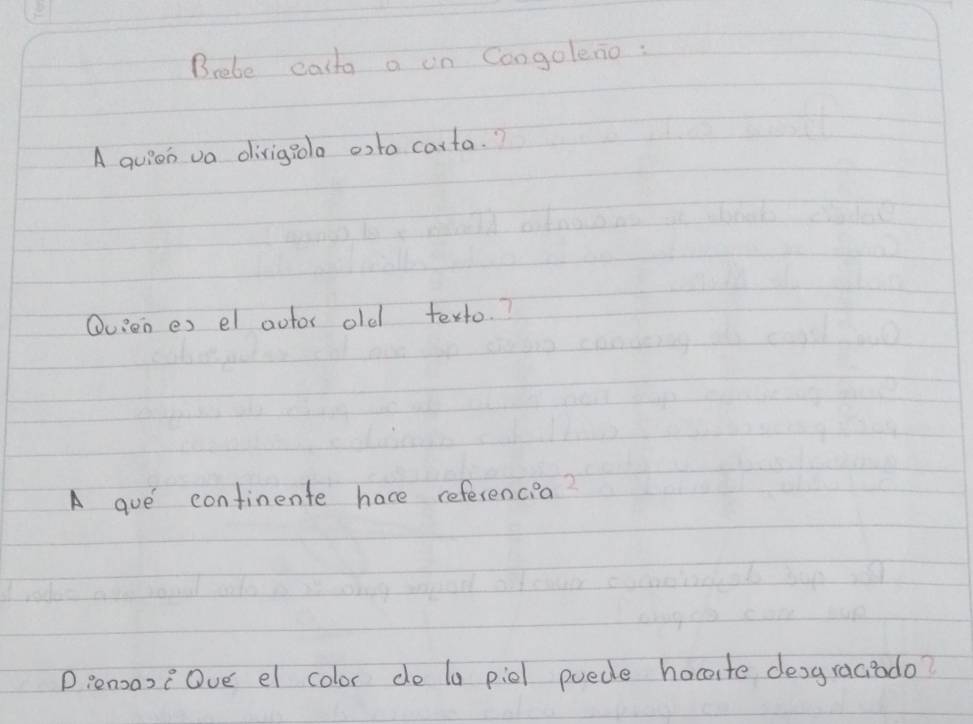 Brebe carta a un Congoleño:
A quien va dirigida esta carta.?
Quien es el autor del texto.?
A qué continente hace referencia?
Piensas¿ Que el color de la piel puede hacerte desgraciado?